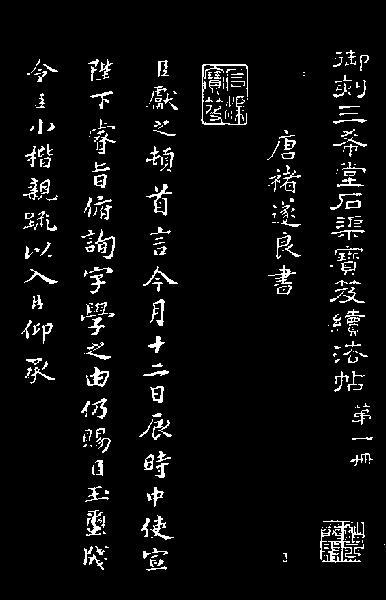 御刻三希堂石渠寶笈續法帖
第一冊
唐褚遂良書
石渠寶笈
臣獻之頓首言今月十二日辰時中使宣
陛下睿旨俯詢字學之由仍賜臣玉璽牋
令臣小楷親疏以入臣仰承
3